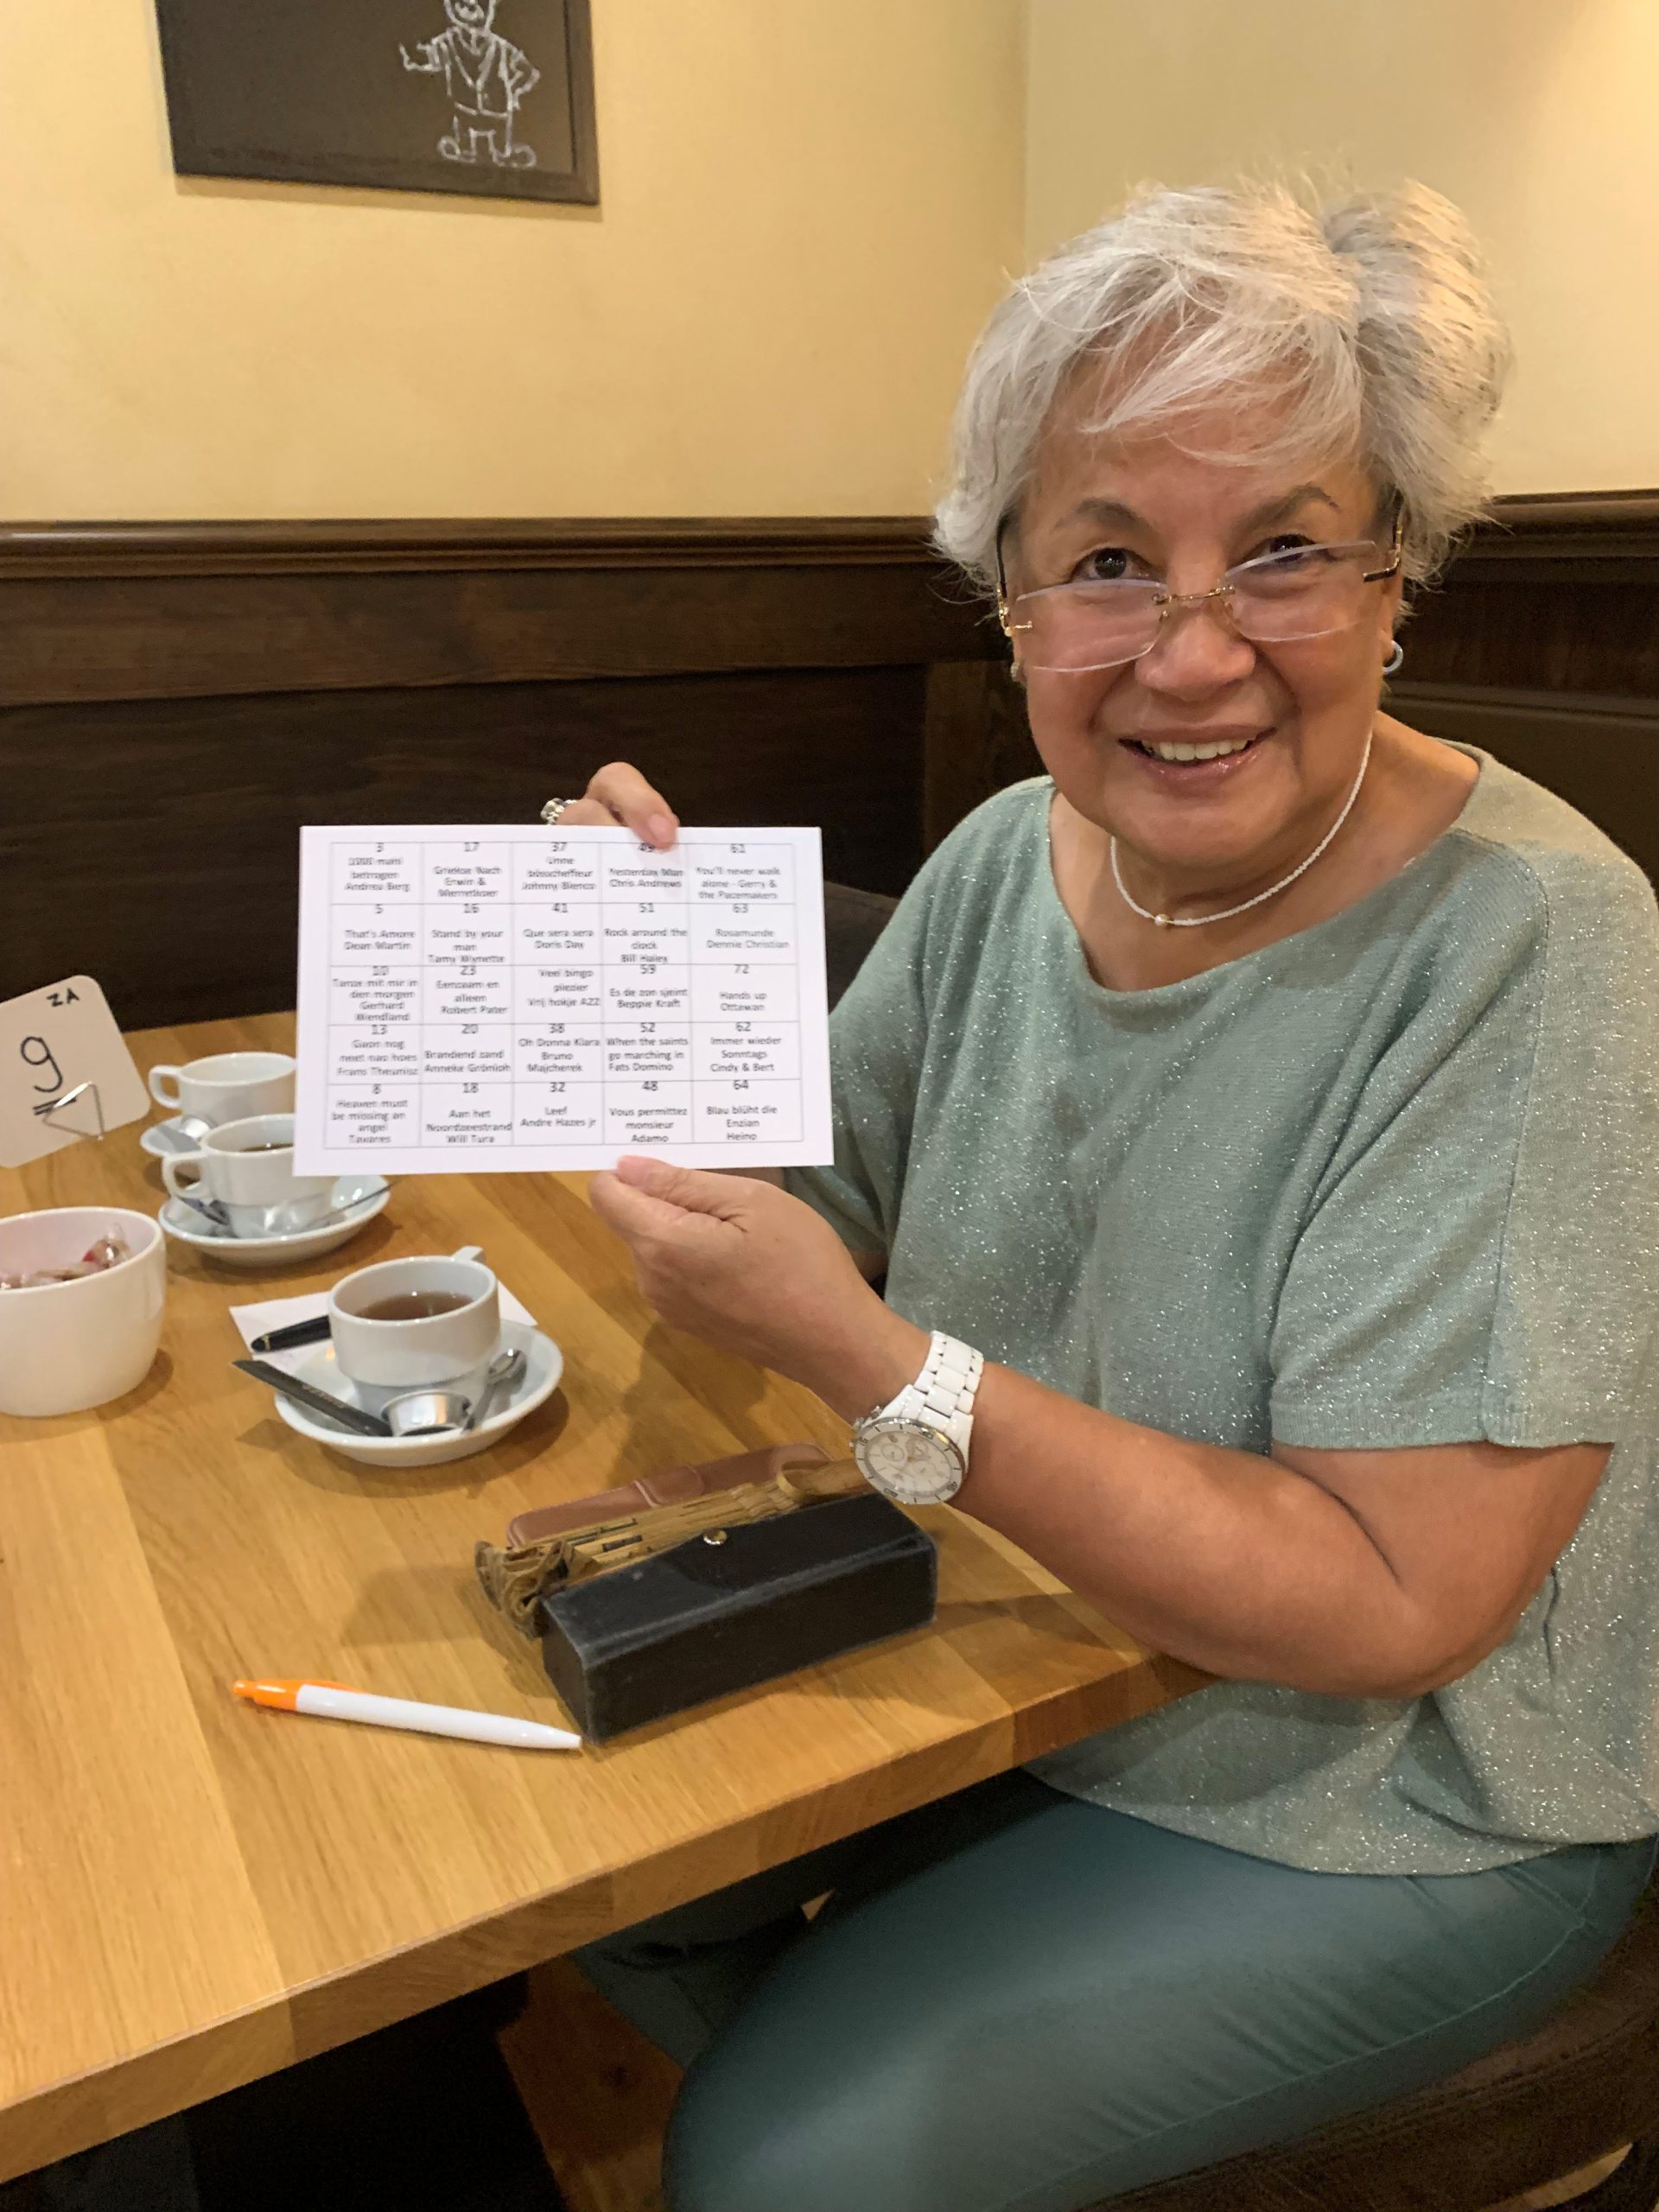 3
1000 mahl
betrogen
Andrea Berg
17
Erwin &
37
Unne
Johnny Blenco
49
Yesterday Man
Chris Andrews
61
You'll never walk
alone - Gerry &
the Pacemakers
5
That's Amore
Dean Martin
16
Stand by your
man
Tamy Wynette
41
Que sera sera
Doris Day
51
Rock around the
clock
Bill Haley
63
Rosamunde
Dennie Christian
10
Tanze mit mir in
den morgen
Gerhard
Wendland
23
Eenzaam en
alleen
Robert Pater
Veel bingo
plezier
Vrij hokje A22
59
Es de zon sjeint
Beppie Kraft
72
Hands up
Ottawan
13
Gaon nog
neet nao hoes
Frans Theunisz
20
Brandend zand
Anneke Grönloh
38
Oh Donna Klara
Bruno
Majcherek
52
When the saints
go marching in
Fats Domino
62
Immer wieder
Sonntags
Cindy & Bert
8
Heaven must
be missing an
angel
Tavares
18
Aan het
Noordzeestrand
Will Tura
32
Leef
Andre Hazes jr
48
Vous permittez
monsieur
Adamo
64
Blau blüht die
Enzian
Heino
ZA
9